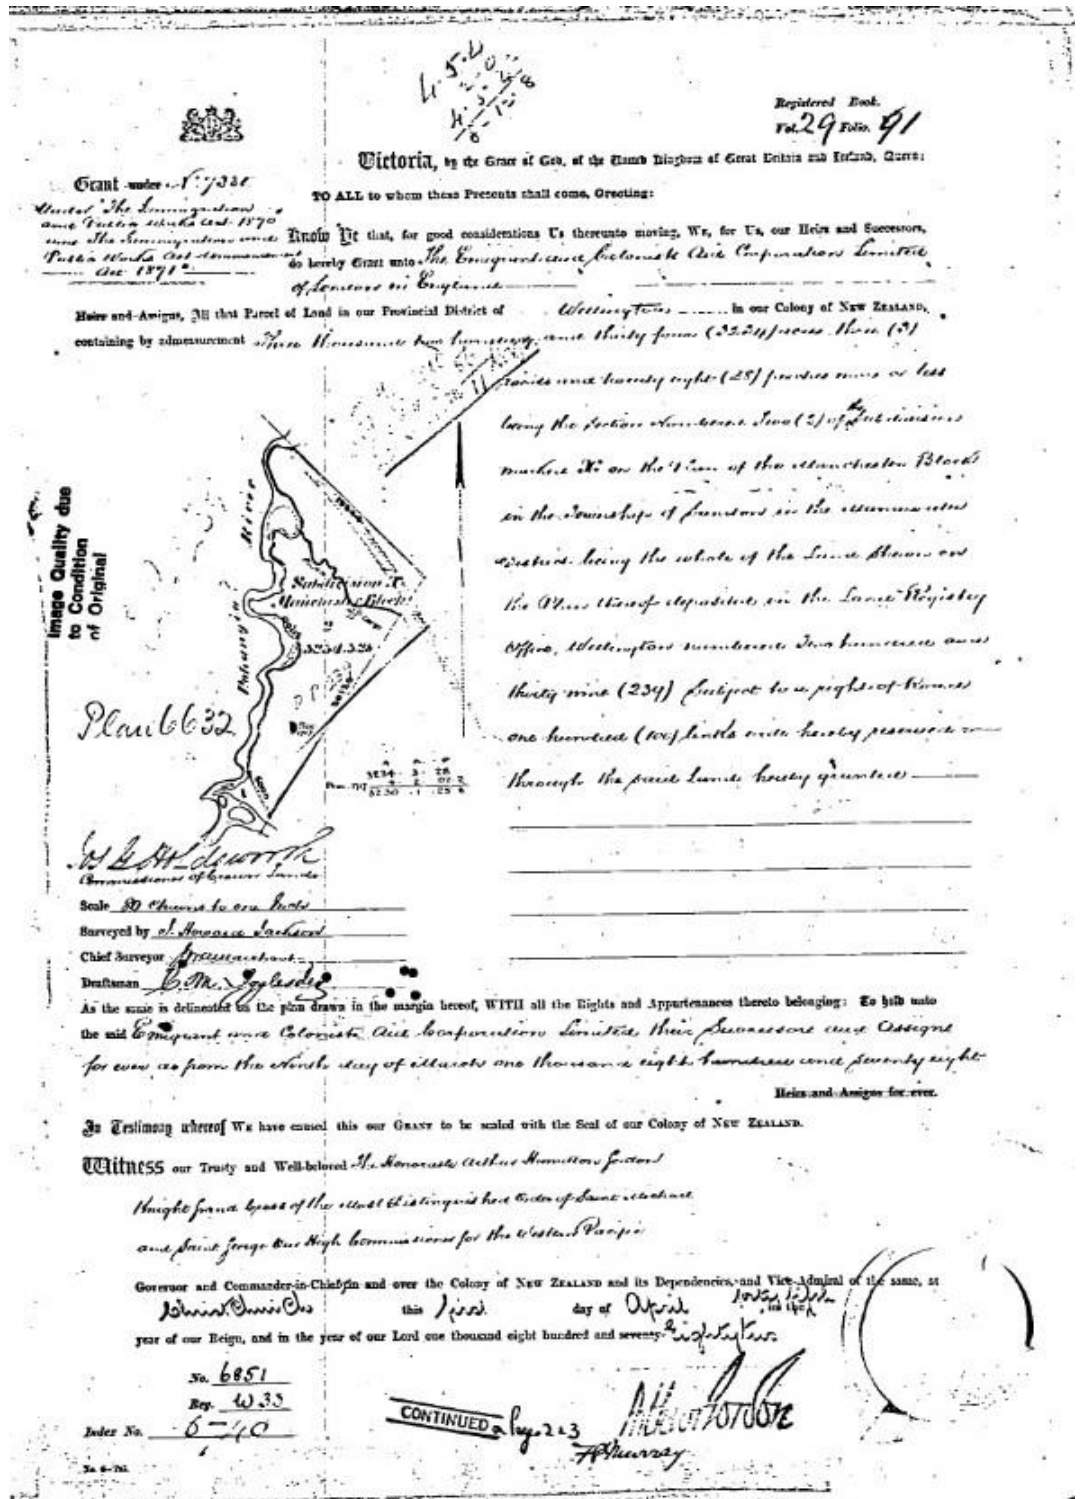 Registered Book.
Vol. 29 Folio. 91
Victoria, by the Grace of God, of the United Kingdom of Great Britain and Ireland, Queen:
Grant under
TO ALL to whom these Presents shall come, Greeting:
Under "The Immigration
and Public Works Act 1870
and The Immigration and
Public Works Act Amendment
Act 1871"
Know Ye that, for good considerations Us thereunto moving, We, for Us, our Heirs and Successors,
do hereby Grant unto The Emigrant and Colonists Aid Corporation Limited
of London in England
Heirs and Assigns, All that Parcel of Land in our Provincial District of Wellington in our Colony of NEW ZEALAND,
containing by admeasurement Three thousand two hundred and thirty four (3234) acres three (3)
roods and twenty eight (28) perches more or less
being the Section Numbered Two (2) of the Subdivision
marked X on the Plan of the Manchester Block
in the Township of Sandon in the Manawatu
District being the whole of the Land Shown on
the Plan thereof deposited in the Land Registry
Office, Wellington numbered Two hundred and
thirty nine (239) Subject to a right of
one hundred (100) links wide hereby reserved
through the said Land hereby granted
Image Quality due
to Condition
of Original
Pohangina River
Subdivision X
Manchester Block
2
3234.3.28
Plan 6632
3234 . 3 . 28
3230 . 1 . 25
Jos G Holdsworth
Commissioner of Crown Lands
Scale 80 Chains to one Inch
Surveyed by J. Howard Jackson
Chief Surveyor J W Marchant
Draftsman
As the same is delineated on the plan drawn in the margin hereof, WITH all the Rights and Appurtenances thereto belonging: To hold unto
the said Emigrant and Colonists Aid Corporation Limited their Successors and Assigns
for ever as from the Ninth day of March one thousand eight hundred and seventy eight
Heirs and Assigns for ever.
In Testimony whereof WE have caused this our GRANT to be sealed with the Seal of our Colony of NEW ZEALAND.
Witness our Trusty and Well-beloved The Honorable Arthur Hamilton Gordon
Knight Grand Cross of the Most Distinguished Order of Saint Michael
and Saint George Our High Commissioner for the Western Pacific
Governor and Commander-in-Chief in and over the Colony of NEW ZEALAND and its Dependencies, and Vice-Admiral of the same, at
Christchurch this first day of April forty fifth in the
year of our Reign, and in the year of our Lord one thousand eight hundred and seventy- Eighty two
No. 6851
Reg. W 33
Index No.
CONTINUED Page 223
Arthur Gordon
Murray